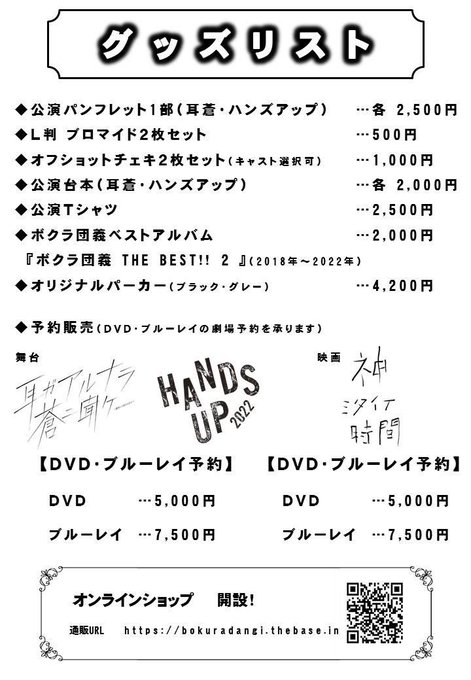 グッズリスト
◆公演パンフレット1部(耳蒼・ハンズアップ) …各 2,500円
◆L判 ブロマイド2枚セット …500円
◆オフショットチェキ2枚セット(キャスト選択可) …1,000円
◆公演台本(耳蒼・ハンズアップ) …各 2,000円
◆公演Tシャツ …2,500円
◆ボクラ団義ベストアルバム …2,000円
『ボクラ団義 THE BEST!! 2 』(2018年～2022年)
◆オリジナルパーカー(ブラック・グレー) …4,200円
◆予約販売(DVD・ブルーレイの劇場予約を承ります)
舞台
耳ガアルナラ
蒼ニ聞ケ
HANDS
UP
2022
映画
神
ミタイナ
時間
【DVD・ブルーレイ予約】
DVD …5,000円
ブルーレイ …7,500円
【DVD・ブルーレイ予約】
DVD …5,000円
ブルーレイ …7,500円
オンラインショップ 開設!
通販URL https://bokuradangi.thebase.in